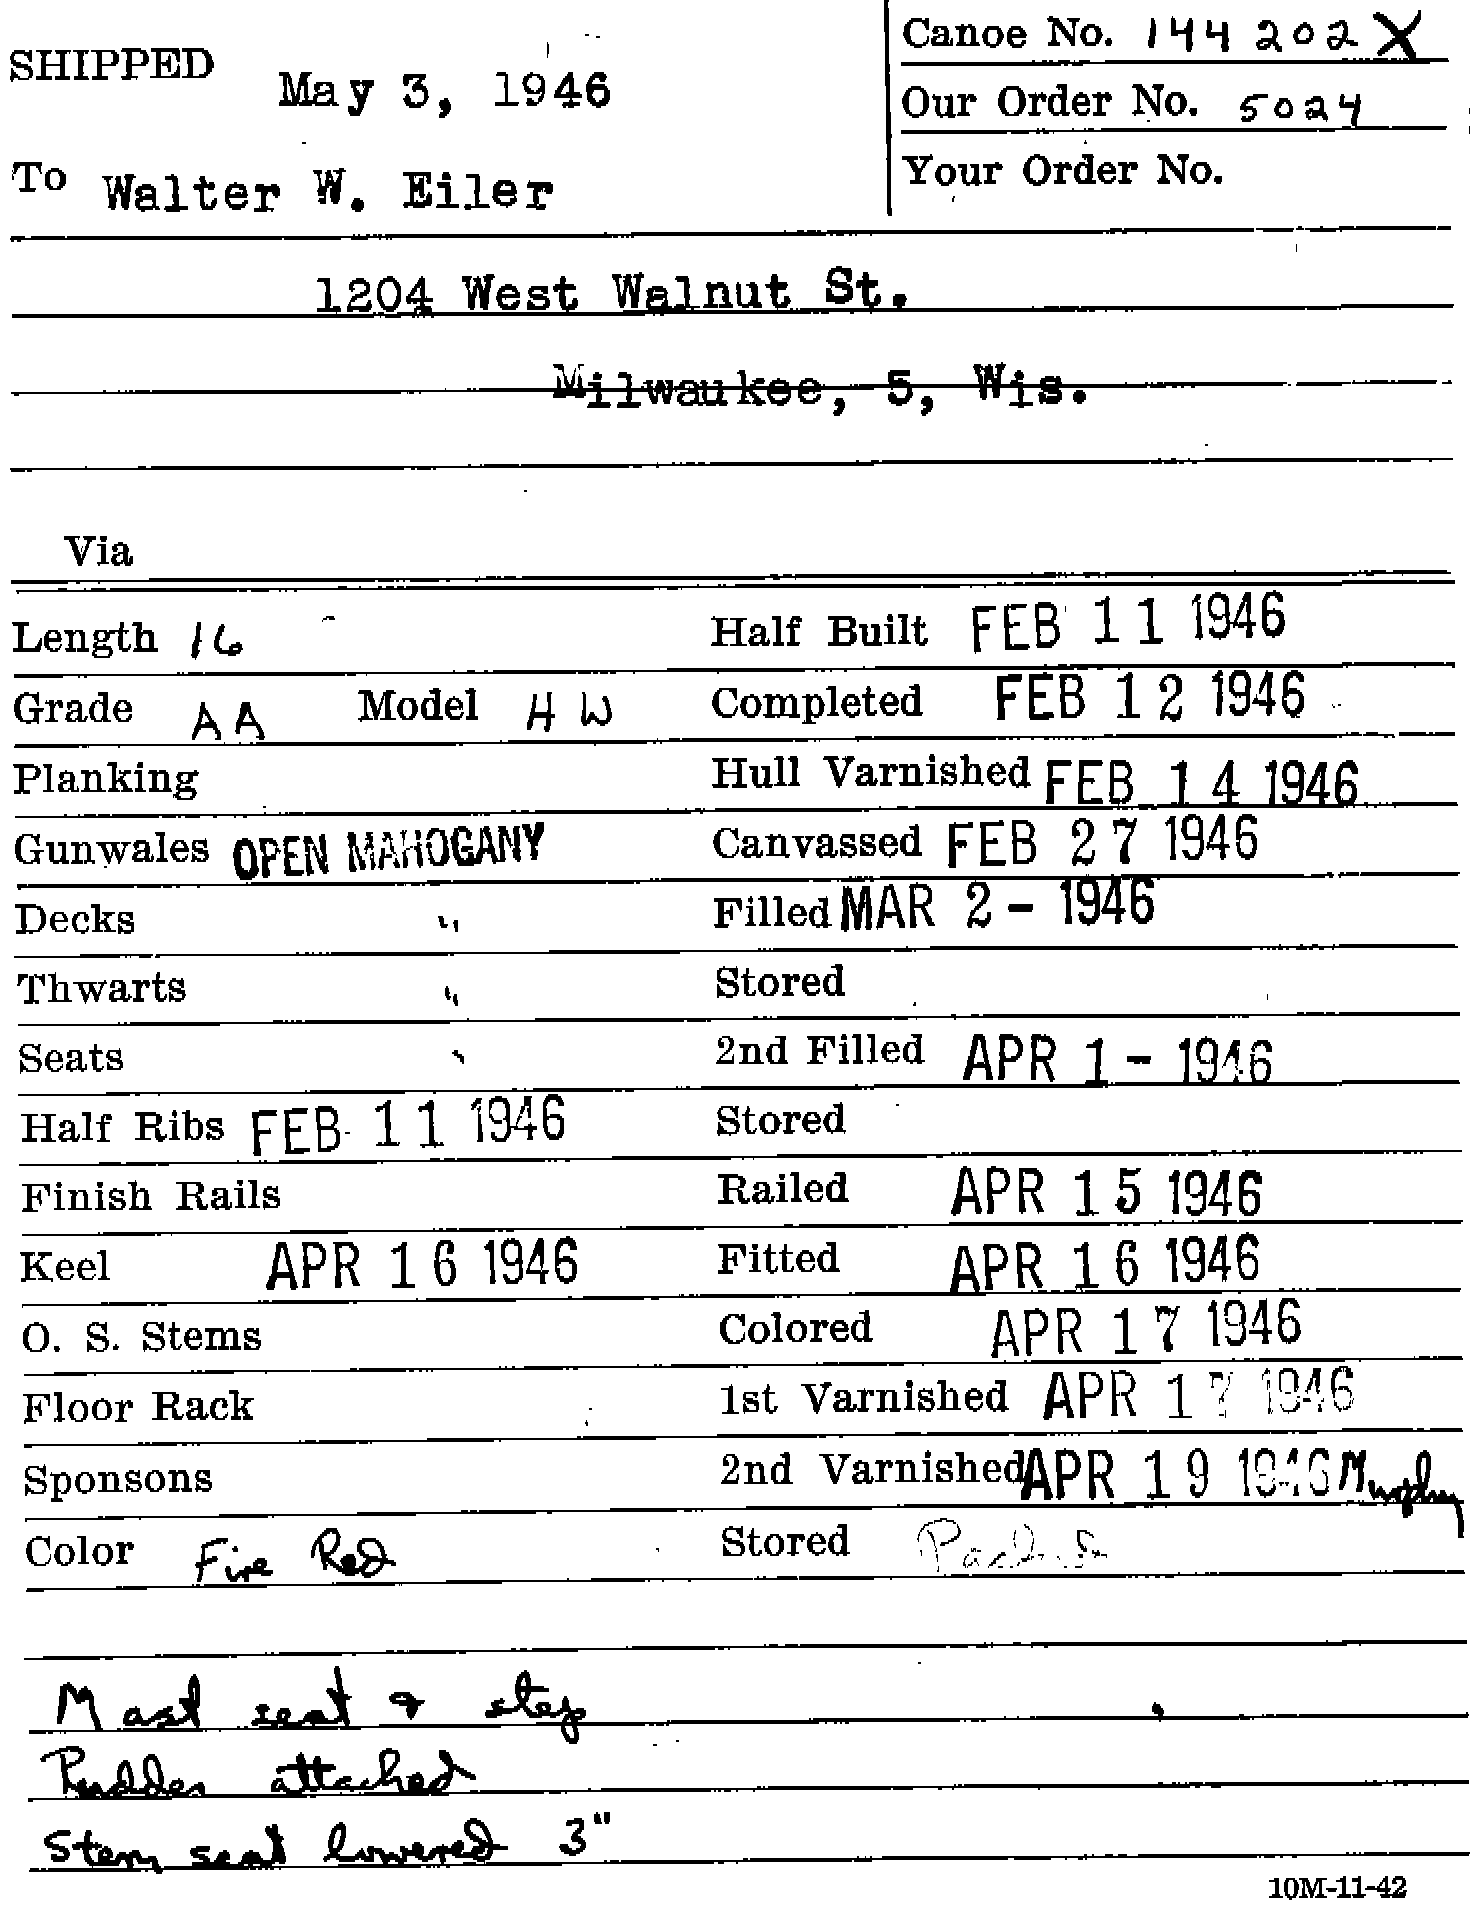 Canoe No. 144 202 X
SHIPPED May 3, 1946
Our Order No. 5024
Your Order No.
To Walter W. Eiler
1204 West Walnut St.
Milwaukee, 5, Wis.
Via
Length 16 Half Built FEB 11 1946
Grade AA Model HW Completed FEB 12 1946
Planking Hull Varnished FEB 14 1946
Gunwales OPEN MAHOGANY Canvassed FEB 27 1946
Decks " Filled MAR 2 - 1946
Thwarts " Stored
Seats " 2nd Filled APR 1 - 1946
Half Ribs FEB 11 1946 Stored
Finish Rails Railed APR 15 1946
Keel APR 16 1946 Fitted APR 16 1946
O. S. Stems Colored APR 17 1946
Floor Rack 1st Varnished APR 17 1946
Sponsons 2nd Varnished APR 19 1946 Murphy
Color Fire Red Stored
Mast seat & step
Rudder attached
Stern seat lowered 3"
10M-11-42